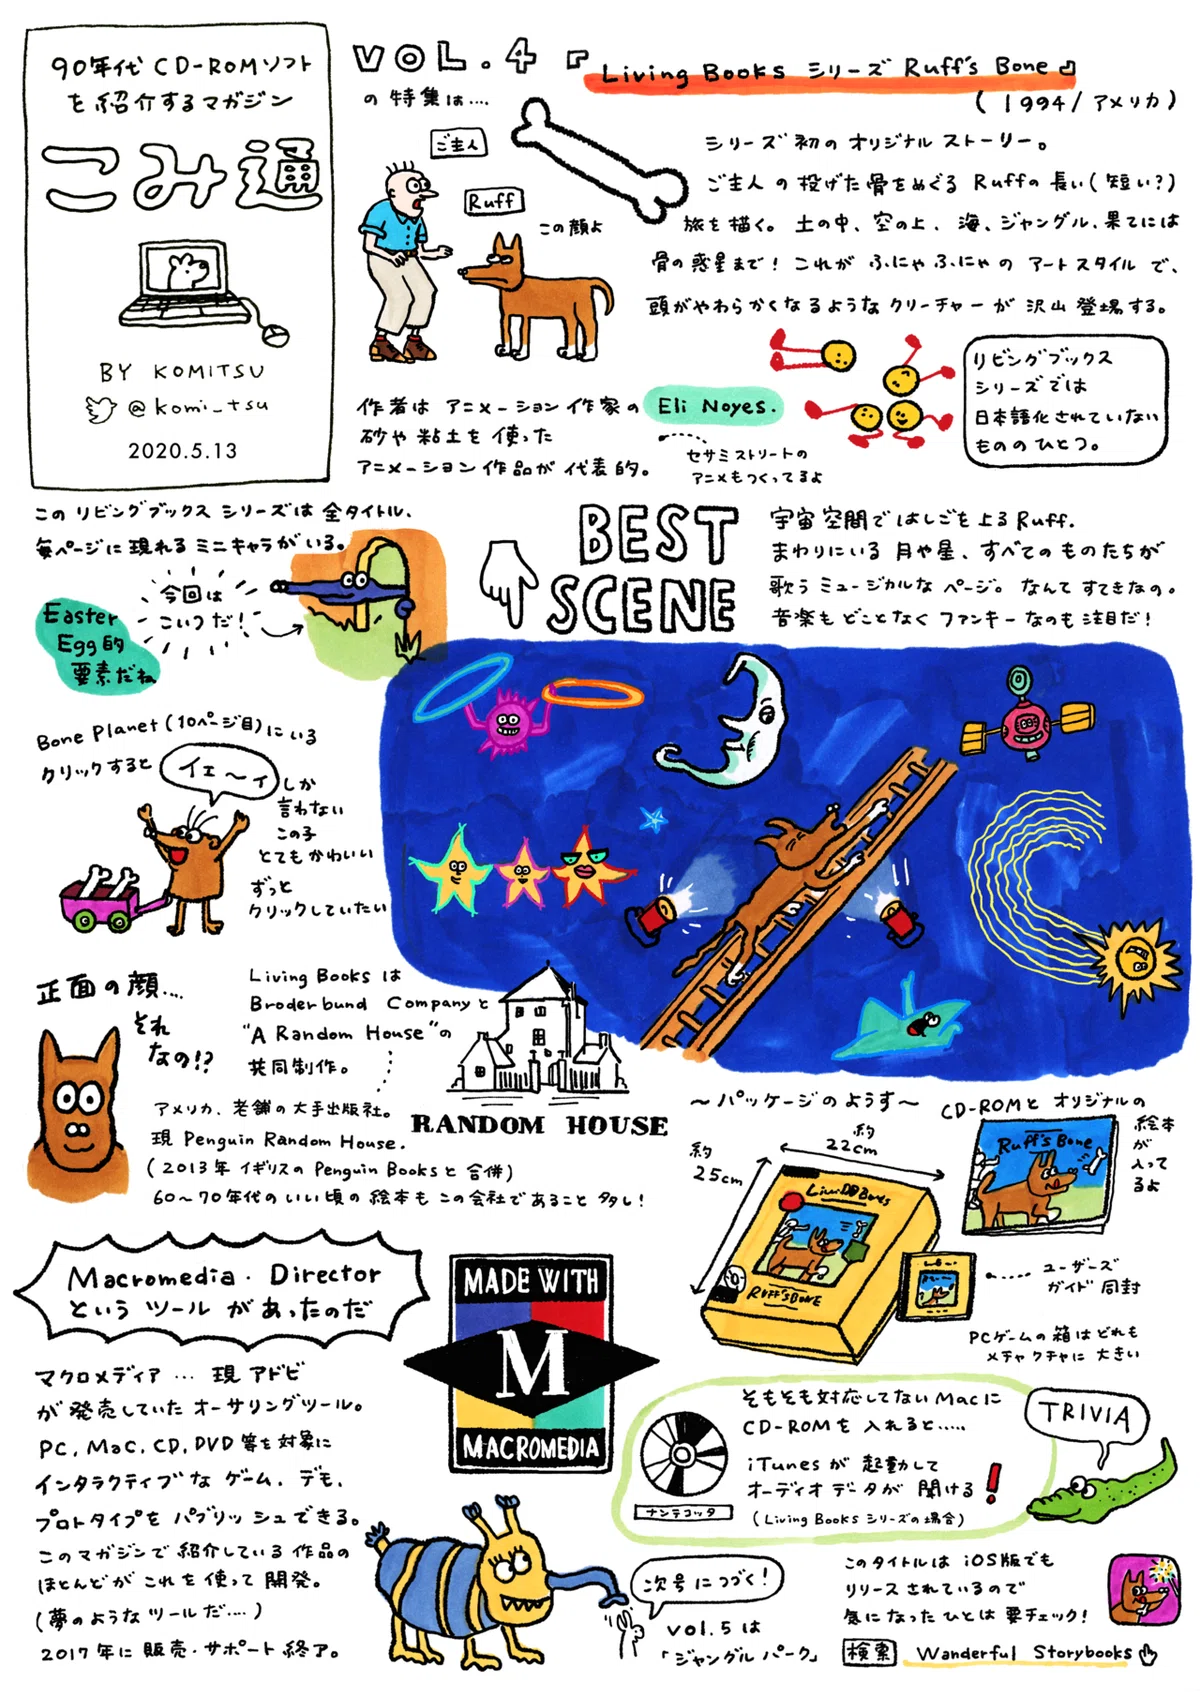 90年代 CD-ROMソフト
を紹介するマガジン
こみ通
BY KOMITSU
@komi_tsu
2020.5.13
VOL.4 「Living Books シリーズ Ruff's Bone」
(1994/アメリカ)
の特集は....
ご主人
Ruff
この顔よ
シリーズ初のオリジナルストーリー。
ご主人の投げた骨をめぐるRuffの長い(短い?)
旅を描く。土の中、空の上、海、ジャングル、果てには
骨の惑星まで!これがふにゃふにゃのアートスタイルで、
頭がやわらかくなるようなクリーチャーが沢山登場する。
作者はアニメーション作家の Eli Noyes.
砂や粘土を使った
アニメーション作品が代表的。
セサミストリートの
アニメもつくってるよ
リビングブックス
シリーズでは
日本語化されていない
もののひとつ。
このリビングブックスシリーズは全タイトル、
毎ページに現れるミニキャラがいる。
今回は
こいつだ!
Easter
Egg的
要素だね
BEST
SCENE
宇宙空間ではしごを上るRuff.
まわりにいる月や星、すべてのものたちが
歌うミュージカルなページ。なんてすてきなの。
音楽もどことなくファンキーなのも注目だ!
Bone Planet(10ページ目)にいる
クリックすると
イェ〜ィ
しか
言わない
この子
とてもかわいい
ずっと
クリックしていたい
正面の顔....
それ
なの!?
Living Booksは
Broderbund Companyと
"A Random House"の
共同制作。
アメリカ、老舗の大手出版社。
現 Penguin Random House.
(2013年イギリスのPenguin Booksと合併)
60〜70年代のいい頃の絵本もこの会社であること多し!
RANDOM HOUSE
〜パッケージのようす〜
約
22cm
約
25cm
CD-ROMとオリジナルの
絵本
が
入って
るよ
Ruff's Bone
Living Books
RUFF'S BONE
ユーザーズ
ガイド同封
PCゲームの箱はどれも
メチャクチャに大きい
Macromedia・Director
というツールがあったのだ
マクロメディア…現アドビ
が発売していたオーサリングツール。
PC,Mac,CD,DVD等を対象に
インタラクティブなゲーム、デモ、
プロトタイプをパブリッシュできる。
このマガジンで紹介している作品の
ほとんどがこれを使って開発。
(夢のようなツールだ....)
2017年に販売・サポート終了。
MADE WITH
M
MACROMEDIA
TRIVIA
そもそも対応してないMacに
CD-ROMを入れると.....
iTunesが起動して
オーディオデータが聞ける!
(Living Booksシリーズの場合)
ナンテコッタ
次号につづく!
vol.5は
「ジャングルパーク」
このタイトルはiOS版でも
リリースされているので
気になったひとは要チェック!
検索 Wanderful Storybooks